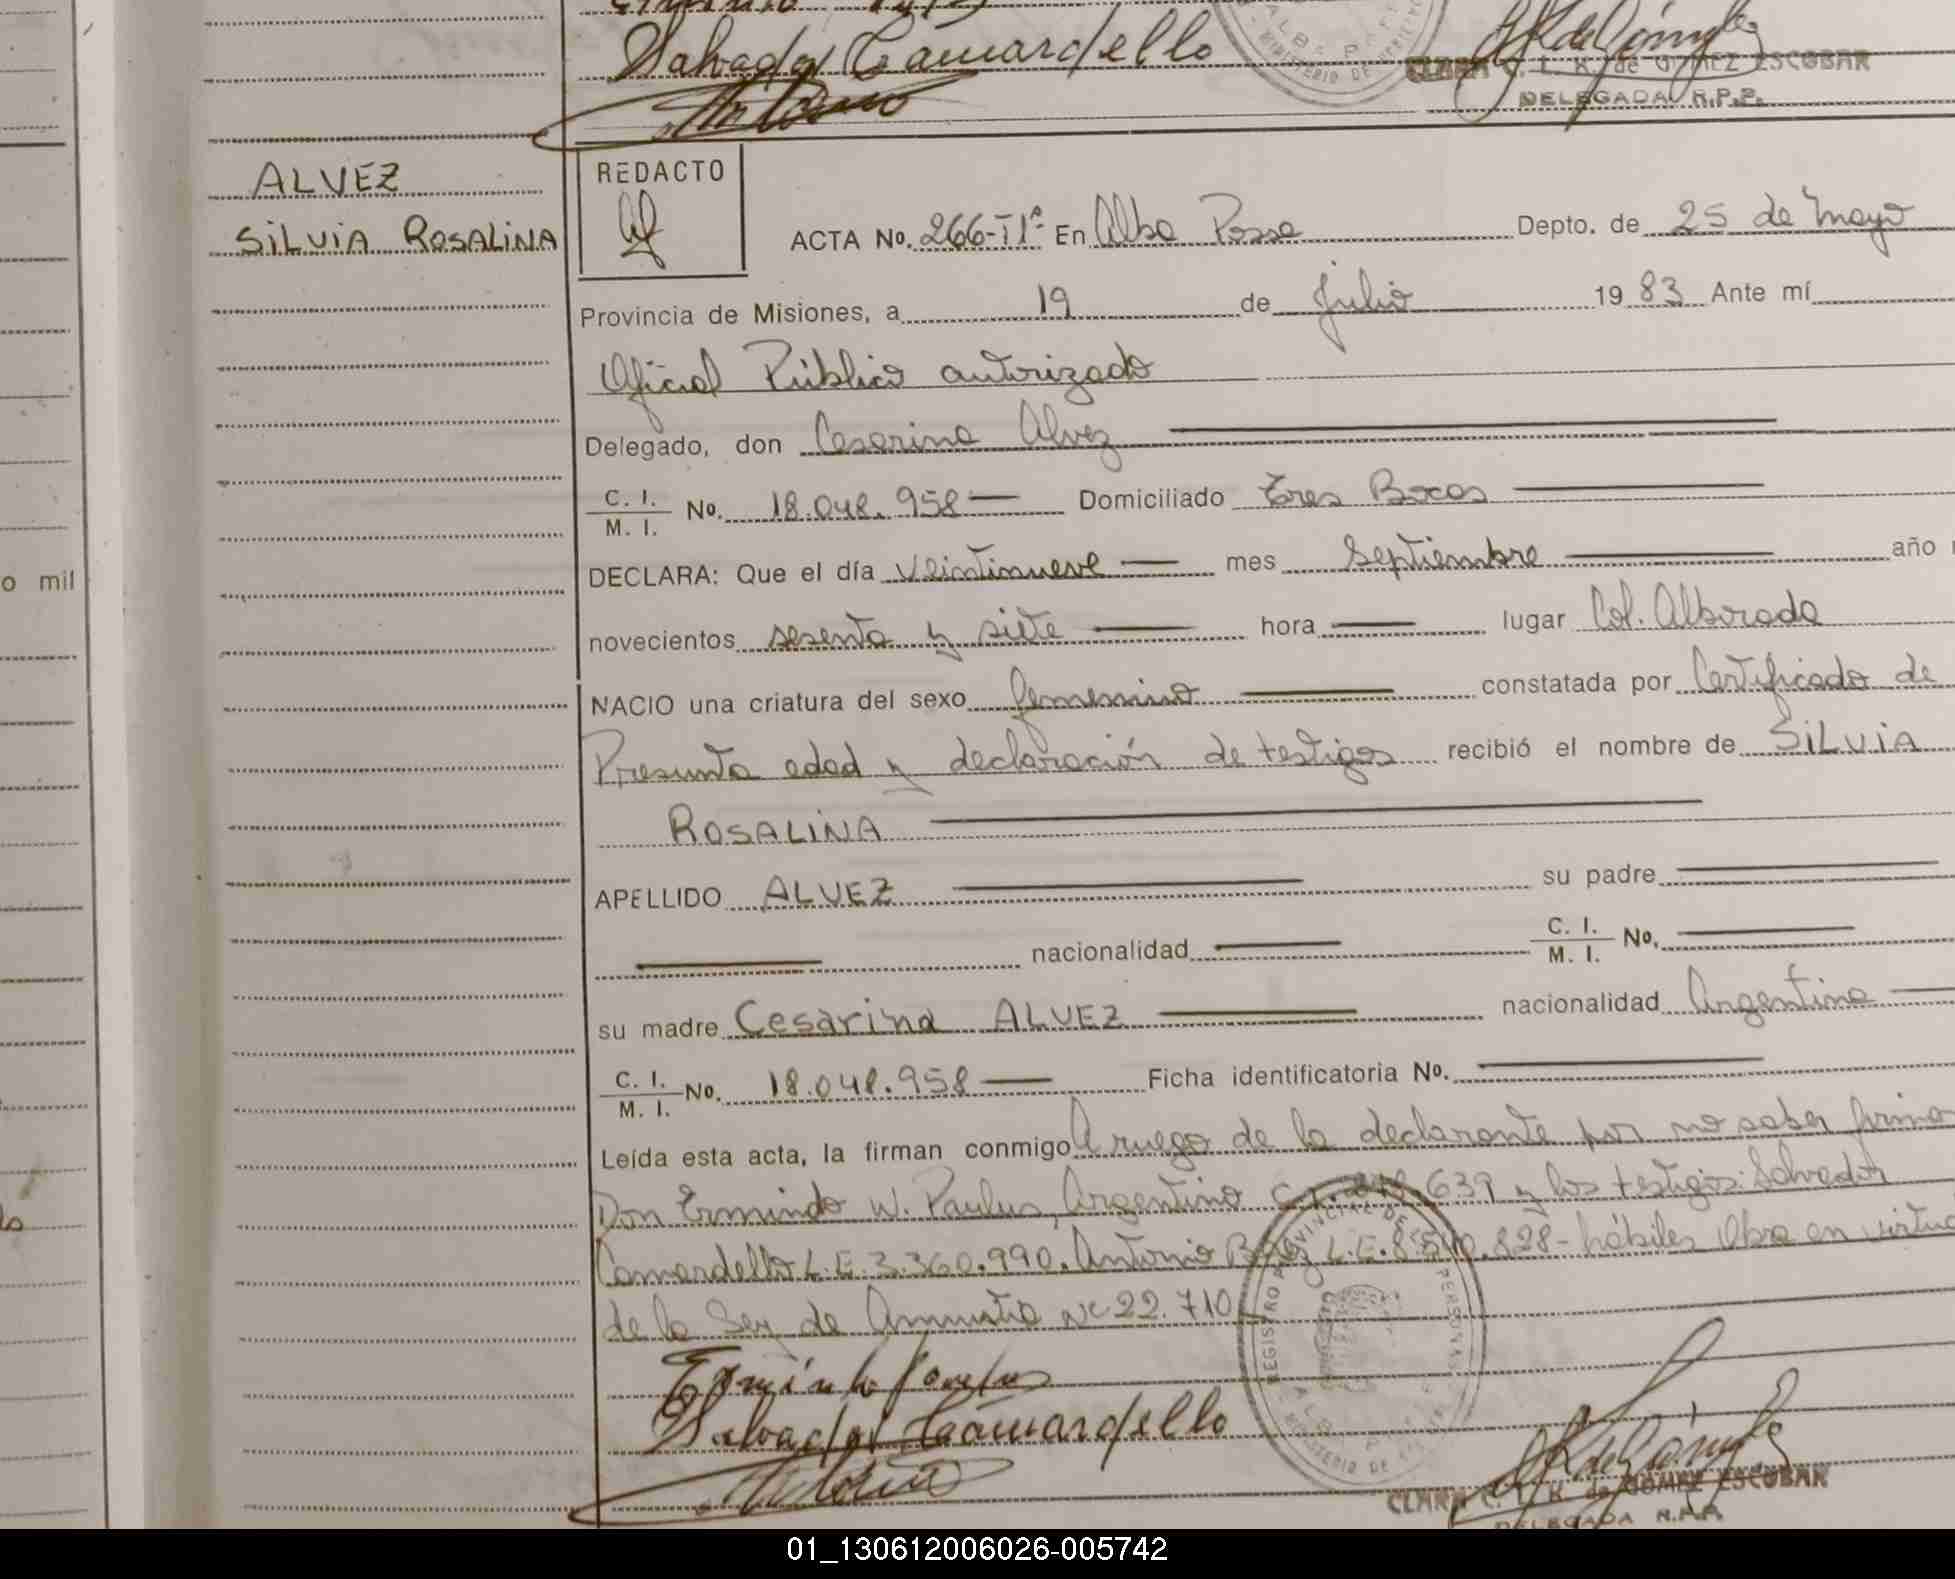 Salvador Camardello
CLARA C. L. K. de GOMEZ ESCOBAR
DELEGADA R.P.P.
ALVEZ
SILVIA ROSALINA
REDACTO
ACTA No. 266-TIª En Alba Posse Depto. de 25 de Mayo
Provincia de Misiones, a 19 de Julio 1983 Ante mí
Oficial Público autorizado
Delegado, don Cesarina Alvez
C. I.
M. I. No. 18.048.958 Domiciliado Tres Bocas
o mil
DECLARA: Que el día veintinueve mes Septiembre año
novecientos sesenta y siete hora lugar Col. Alborada
NACIO una criatura del sexo femenino constatada por Certificado de
Presunta edad y declaración de testigos recibió el nombre de SILVIA
ROSALINA
APELLIDO ALVEZ su padre
nacionalidad C. I.
M. I. No.
su madre Cesarina ALVEZ nacionalidad Argentina
C. I.
M. I. No. 18.048.958 Ficha identificatoria No.
Leída esta acta, la firman conmigo A ruego de la declarante por no saber firma
Don Ermindo W. Paulus, Argentino 639 y los testigos: Salvador
Camardello L.E. 3.360.990. Antonio L.E. 828- hábiles Obra en virtu
de la Ley de Amnistia Nº 22.710
Salvador Camardello
CLARA C. L. K. de GOMEZ ESCOBAR
DELEGADA R.P.P.
01_130612006026-005742